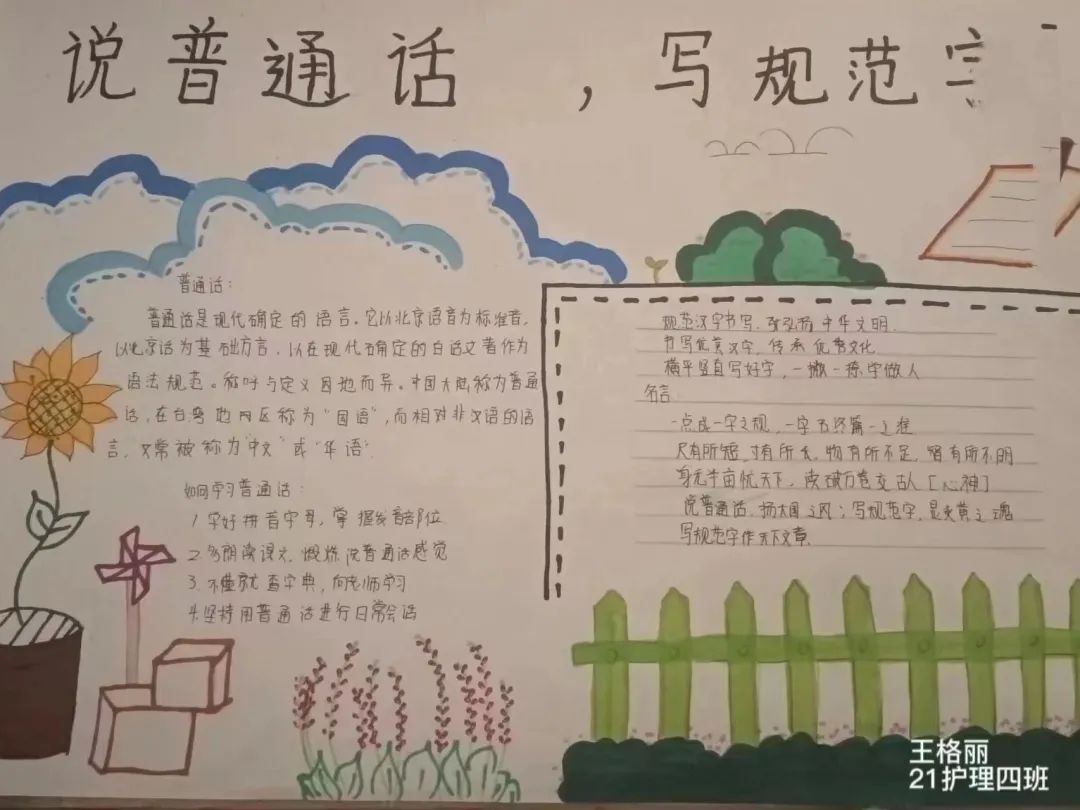 说普通话，写规范字
普通话：
普通话是现代确定的语言。它以北京语音为标准音，
以北京话为基础方言，以在现代确定的白话文著作为
语法规范。称呼与定义因地而异。中国大陆称为普通
话，在台湾地区称为“国语”，而相对非汉语的语
言，又常被称为“中文”或“华语”。
如何学习普通话：
1 学好拼音字母，掌握发音部位
2.多朗读课文，锻炼说普通话感觉
3.不懂就查字典，向老师学习
4.坚持用普通话进行日常会话
规范汉字书写，弘扬中华文明.
书写优美汉字，传承优秀文化
横平竖直写好字，一撇一捺学做人
名言：
一点成一字之规，一字乃终篇之准
尺有所短，寸有所长，物有所不足，智有所不明
身无半亩忧天下，读破万卷交古人[心神]
说普通话，扬大国之风；写规范字，是炎黄之魂
写规范字作天下文章
王格丽
21护理四班